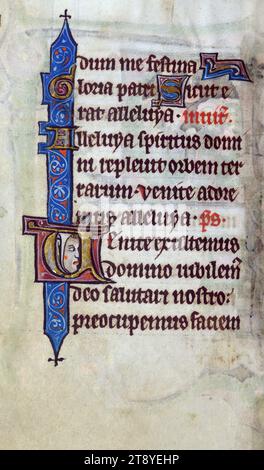 dum me festina
Gloria patri Sicut e
rat alleluya · inuit̄.
Alleluya spiritus domi
ni repleuit orbem ter
rarum · uenite adore
mus alleluya · ps
Uenite exultemus
domino iubilem̄
deo salutari nostro:
preocupemus faciem
alamy
Image ID: 2T8YEHP
www.alamy.com